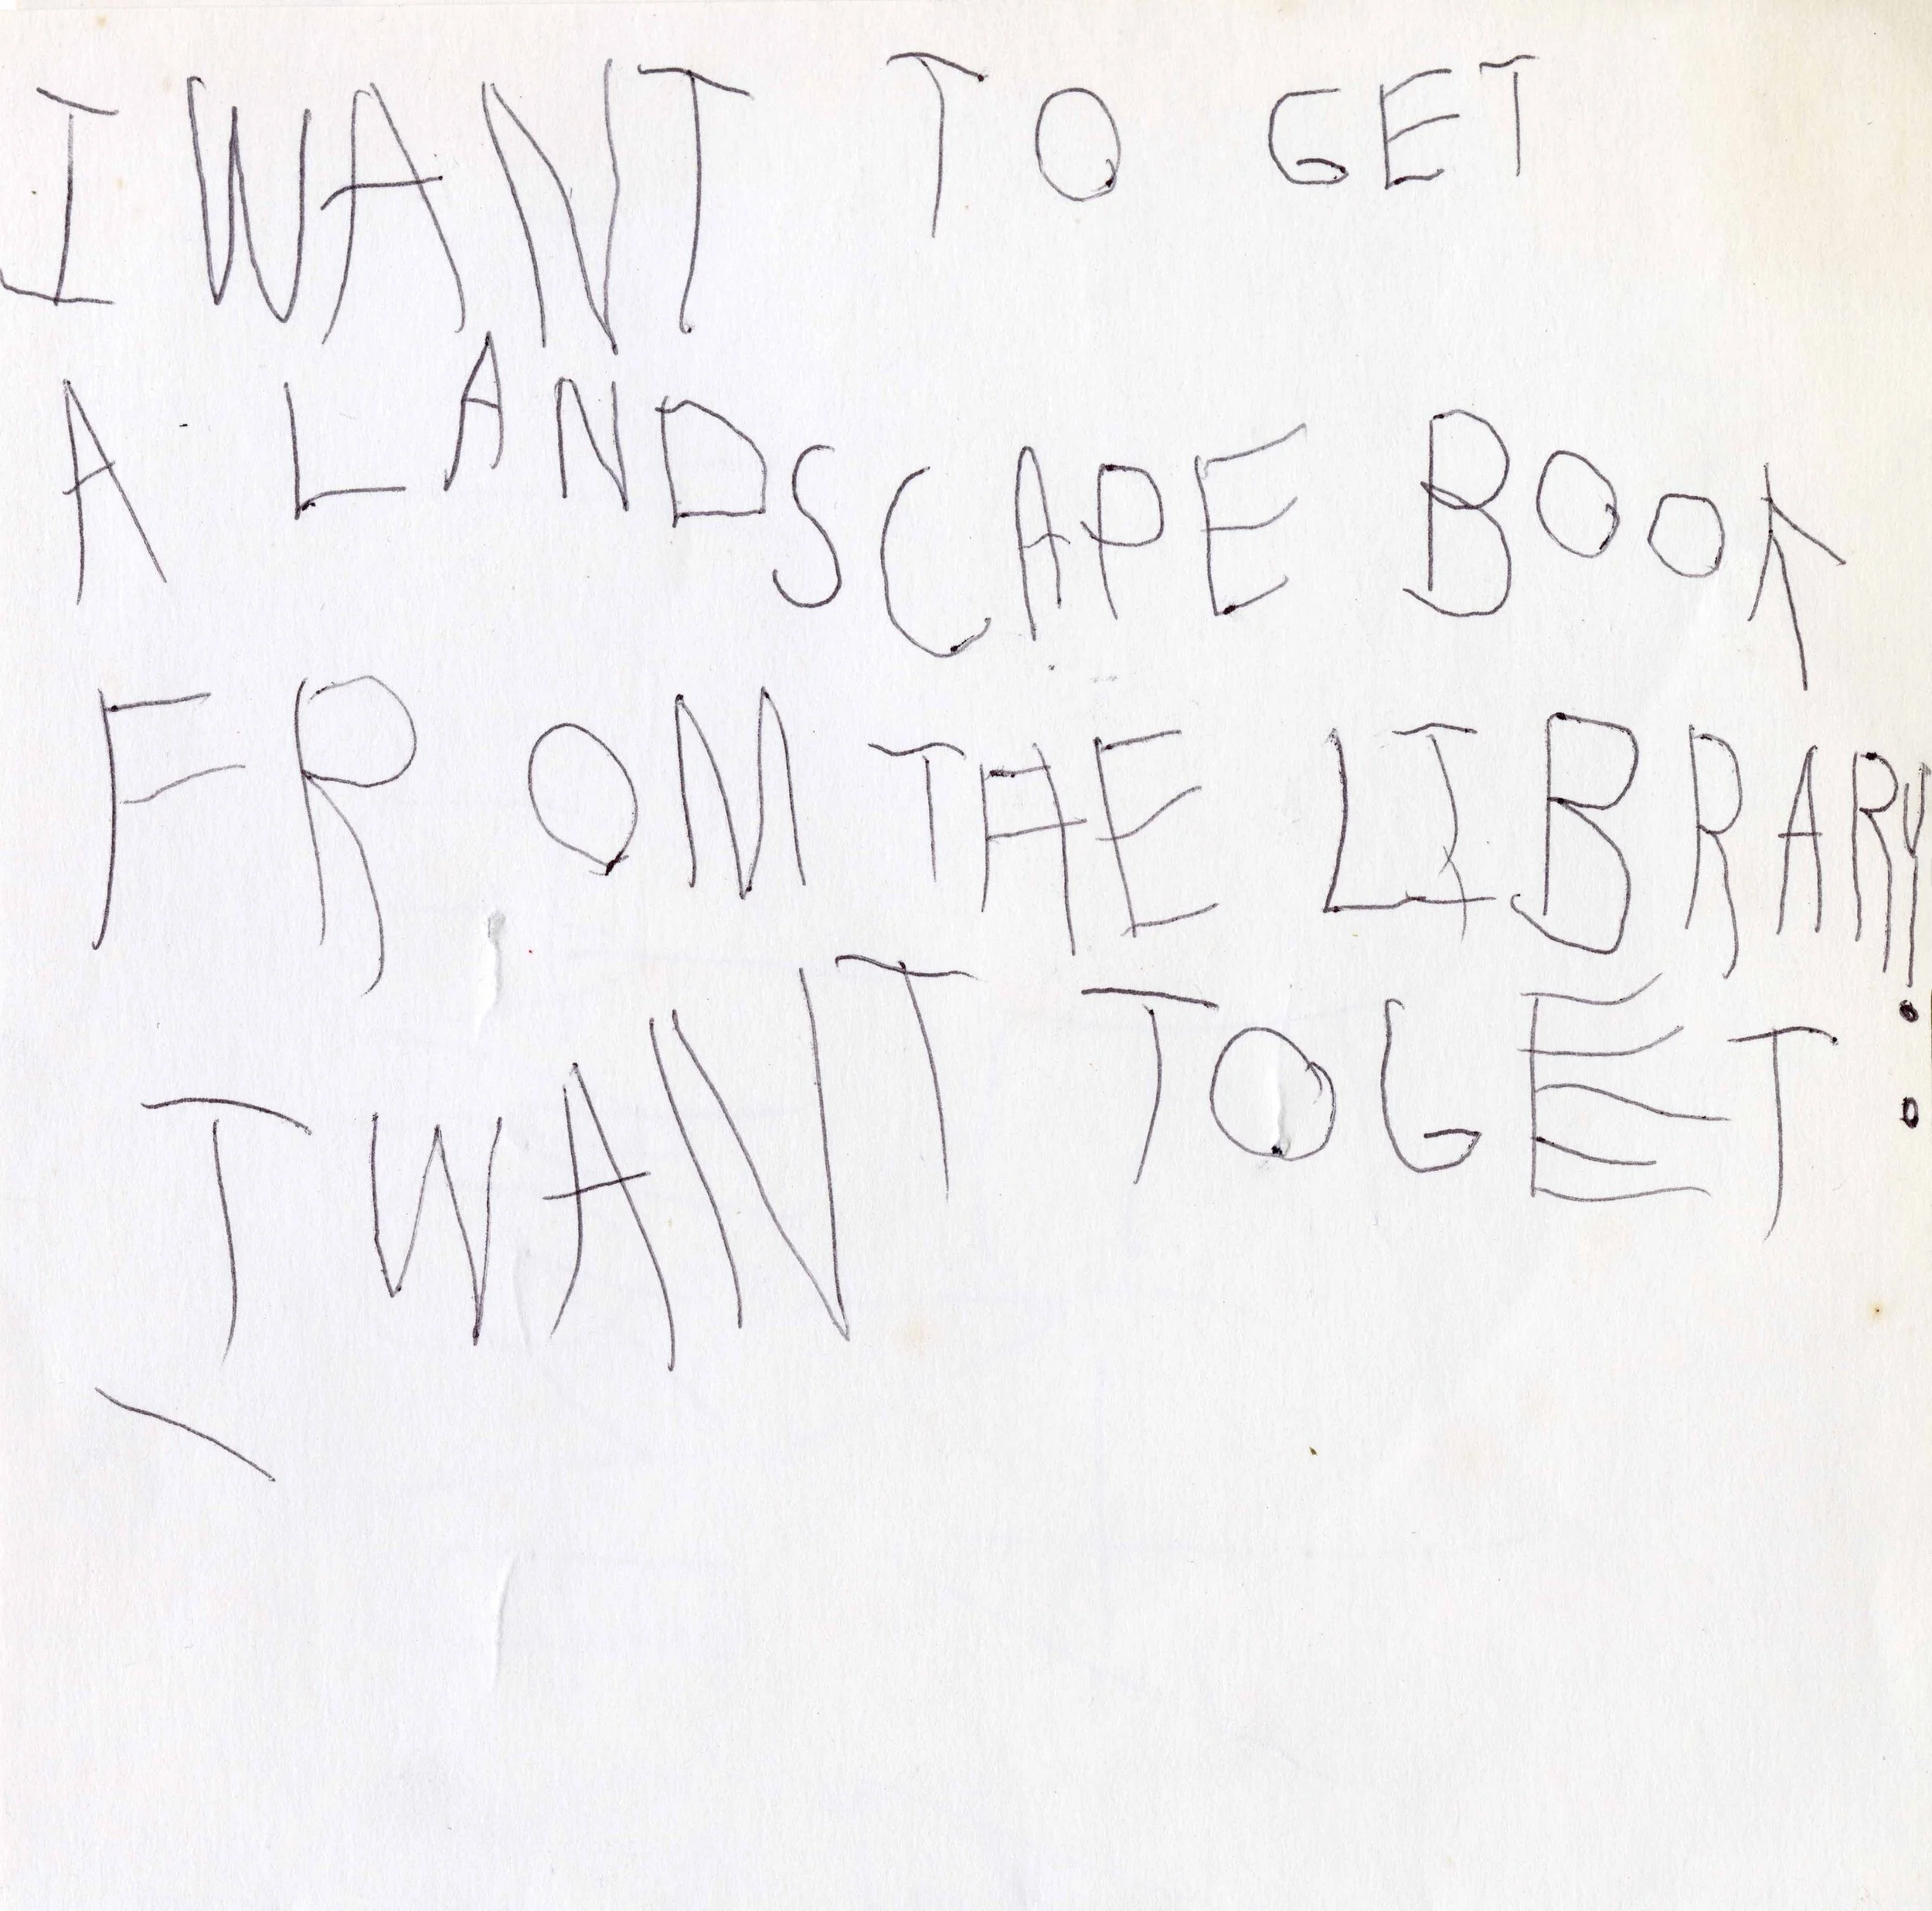 I WANT TO GET
A LANDSCAPE BOOK
FROM THE LIBRARY:
I WANT TO GET